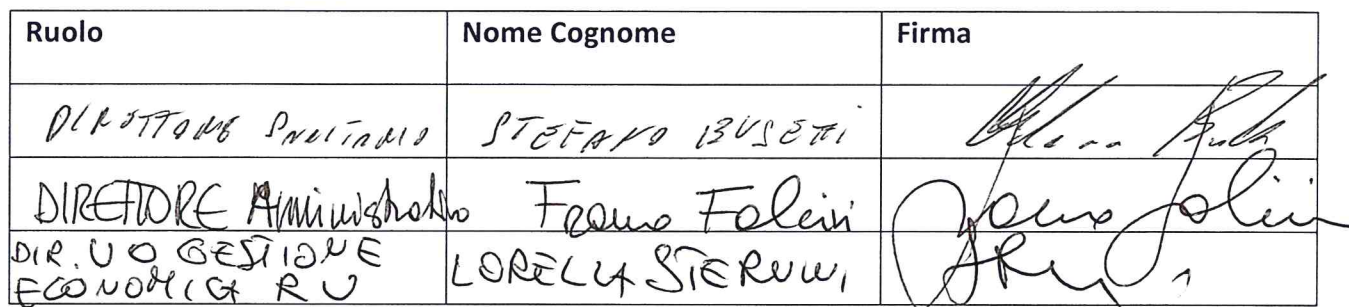 Ruolo Nome Cognome Firma
DIRETTORE SANITARIO STEFANO BUSETTI
DIRETTORE Amministrativo Franco Falcini
DIR. UO GESTIONE LORELLA STERNINI
ECONOMICA RU